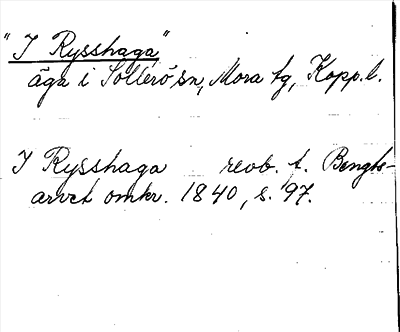 "I Rysshaga"
äga i Sollerö sn, Mora tg, Kopp. l.
I Rysshaga reob. t. Bengts-
arvet omkr. 1840, s. 97.